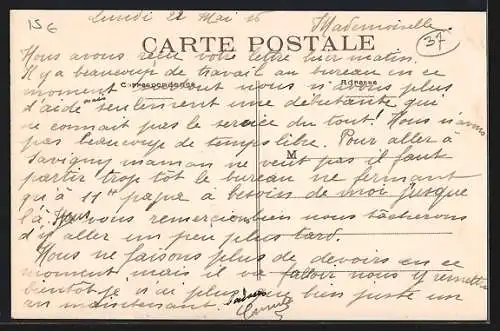 15 G
37
Lundi 22 Mai 16
Mademoiselle.
CARTE POSTALE
Correspondance
Adresse
M
Nous avons reçu votre lettre hier matin.
Il y a beaucoup de travail au bureau en ce
moment surtout nous n'avons plus
d'aide mais seulement une débutante qui
ne connait pas le service du tout! Nous n'avons
pas beaucoup de temps libre. Pour aller à
Savigny maman ne veut pas il faut
partir trop tôt le bureau ne fermant
qu'à 11H papa a besoin de moi jusque
là. Nous vous remercions bien nous tâcherons
d'y aller un peu plus tard.
Nous ne faisons plus de devoirs en ce
moment mais il va falloir nous y remettre
bientôt je n'ai plus bien juste un
an maintenant.